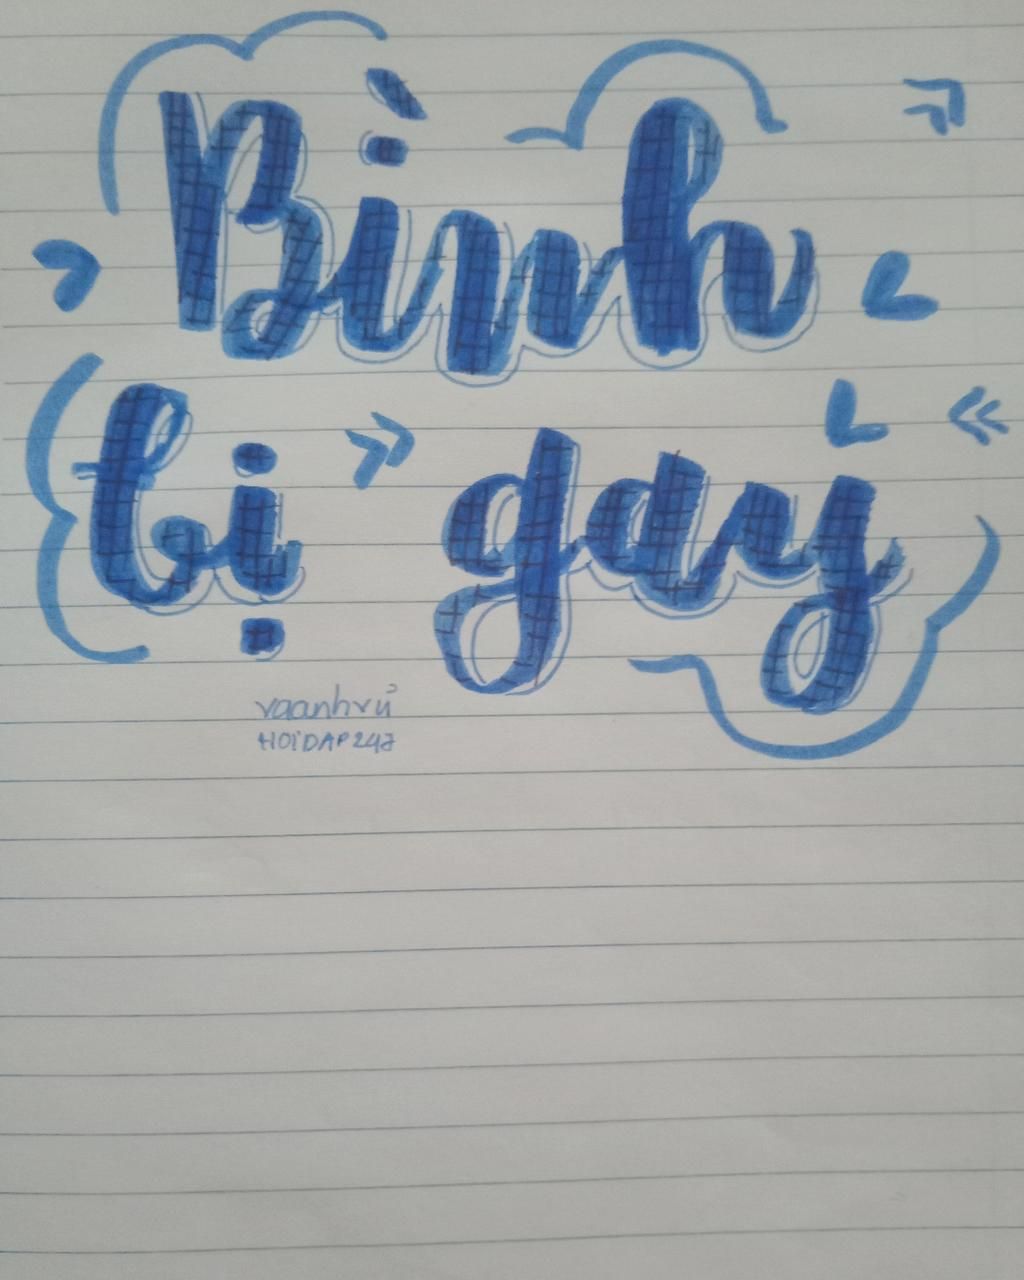 Bình
bị gay
vaanhvũ
HOIDAP247